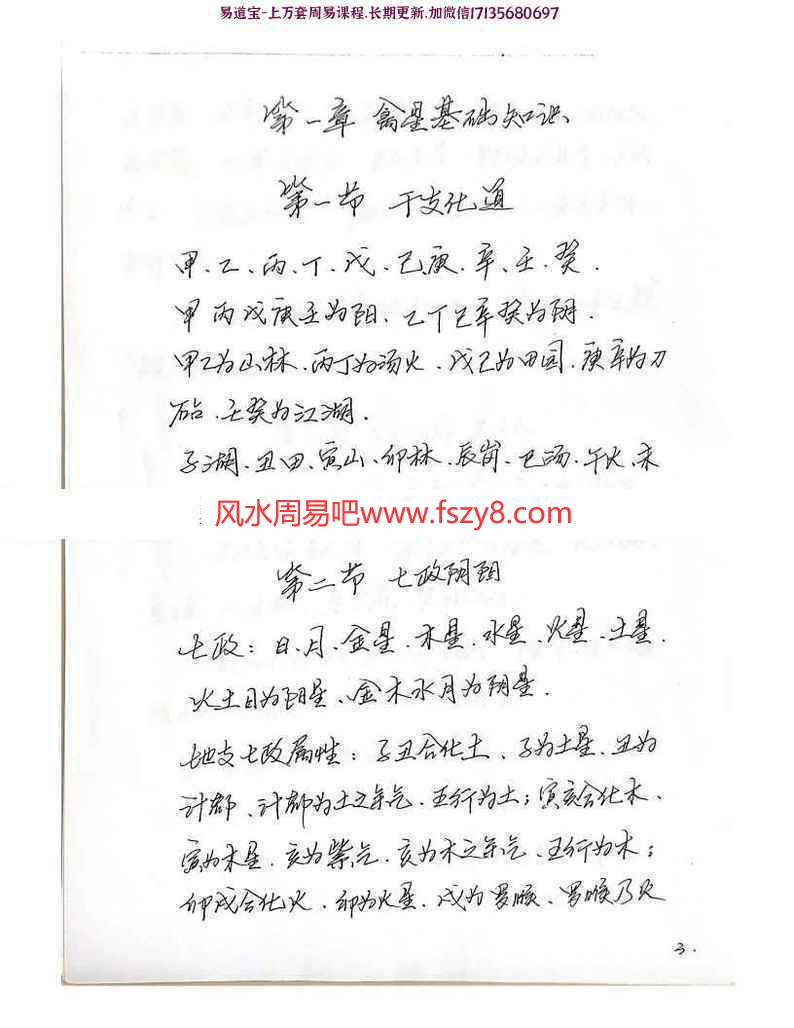 易道宝-上万套周易课程.长期更新.加微信17135680697
第一章 禽星基础知识
第一节 干支化道
甲、乙、丙、丁、戊、己、庚、辛、壬、癸.
甲丙戊庚壬为阳、乙丁己辛癸为阴.
甲乙为山林、丙丁为汤火、戊己为田园、庚辛为刀
砧、壬癸为江湖.
子湖、丑田、寅山、卯林、辰岗、巳汤、午火、未
风水周易吧www.fszy8.com
第二节 七政阴阳
七政：日、月、金星、木星、水星、火星、土星.
火土日为阳星、金木水月为阴星.
地支七政属性：子丑合化土、子为土星、丑为
计都、计都为土之余气、五行为土；寅亥合化木、
寅为木星、亥为紫气、亥为木之余气、五行为木；
卯戌合化火、卯为火星、戌为罗睺、罗睺乃火
3.